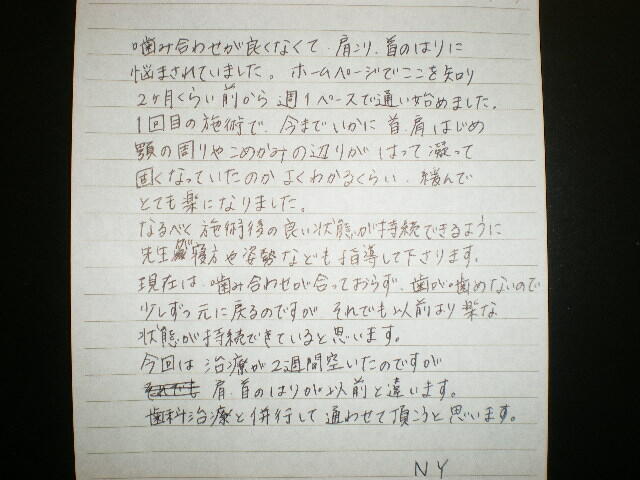 噛み合わせが良くなくて、肩こり、首のはりに
悩まされていました。ホームページでここを知り
2ヶ月くらい前から週1ペースで通い始めました。
1回目の施術で、今までいかに首、肩はじめ
顎の周りやこめかみの辺りがはって凝って
固くなっていたのかよくわかるくらい、緩んで
とても楽になりました。
なるべく施術後の良い状態が持続できるように
先生が寝方や姿勢なども指導して下さります。
現在は、噛み合わせが合っておらず、歯が噛めないので
少しずつ元に戻るのですが、それでも以前より楽な
状態が持続できていると思います。
今回は治療が2週間空いたのですが
それでも 肩、首のはりが以前と違います。
歯科治療と併行して通わせて頂こうと思います。
NY